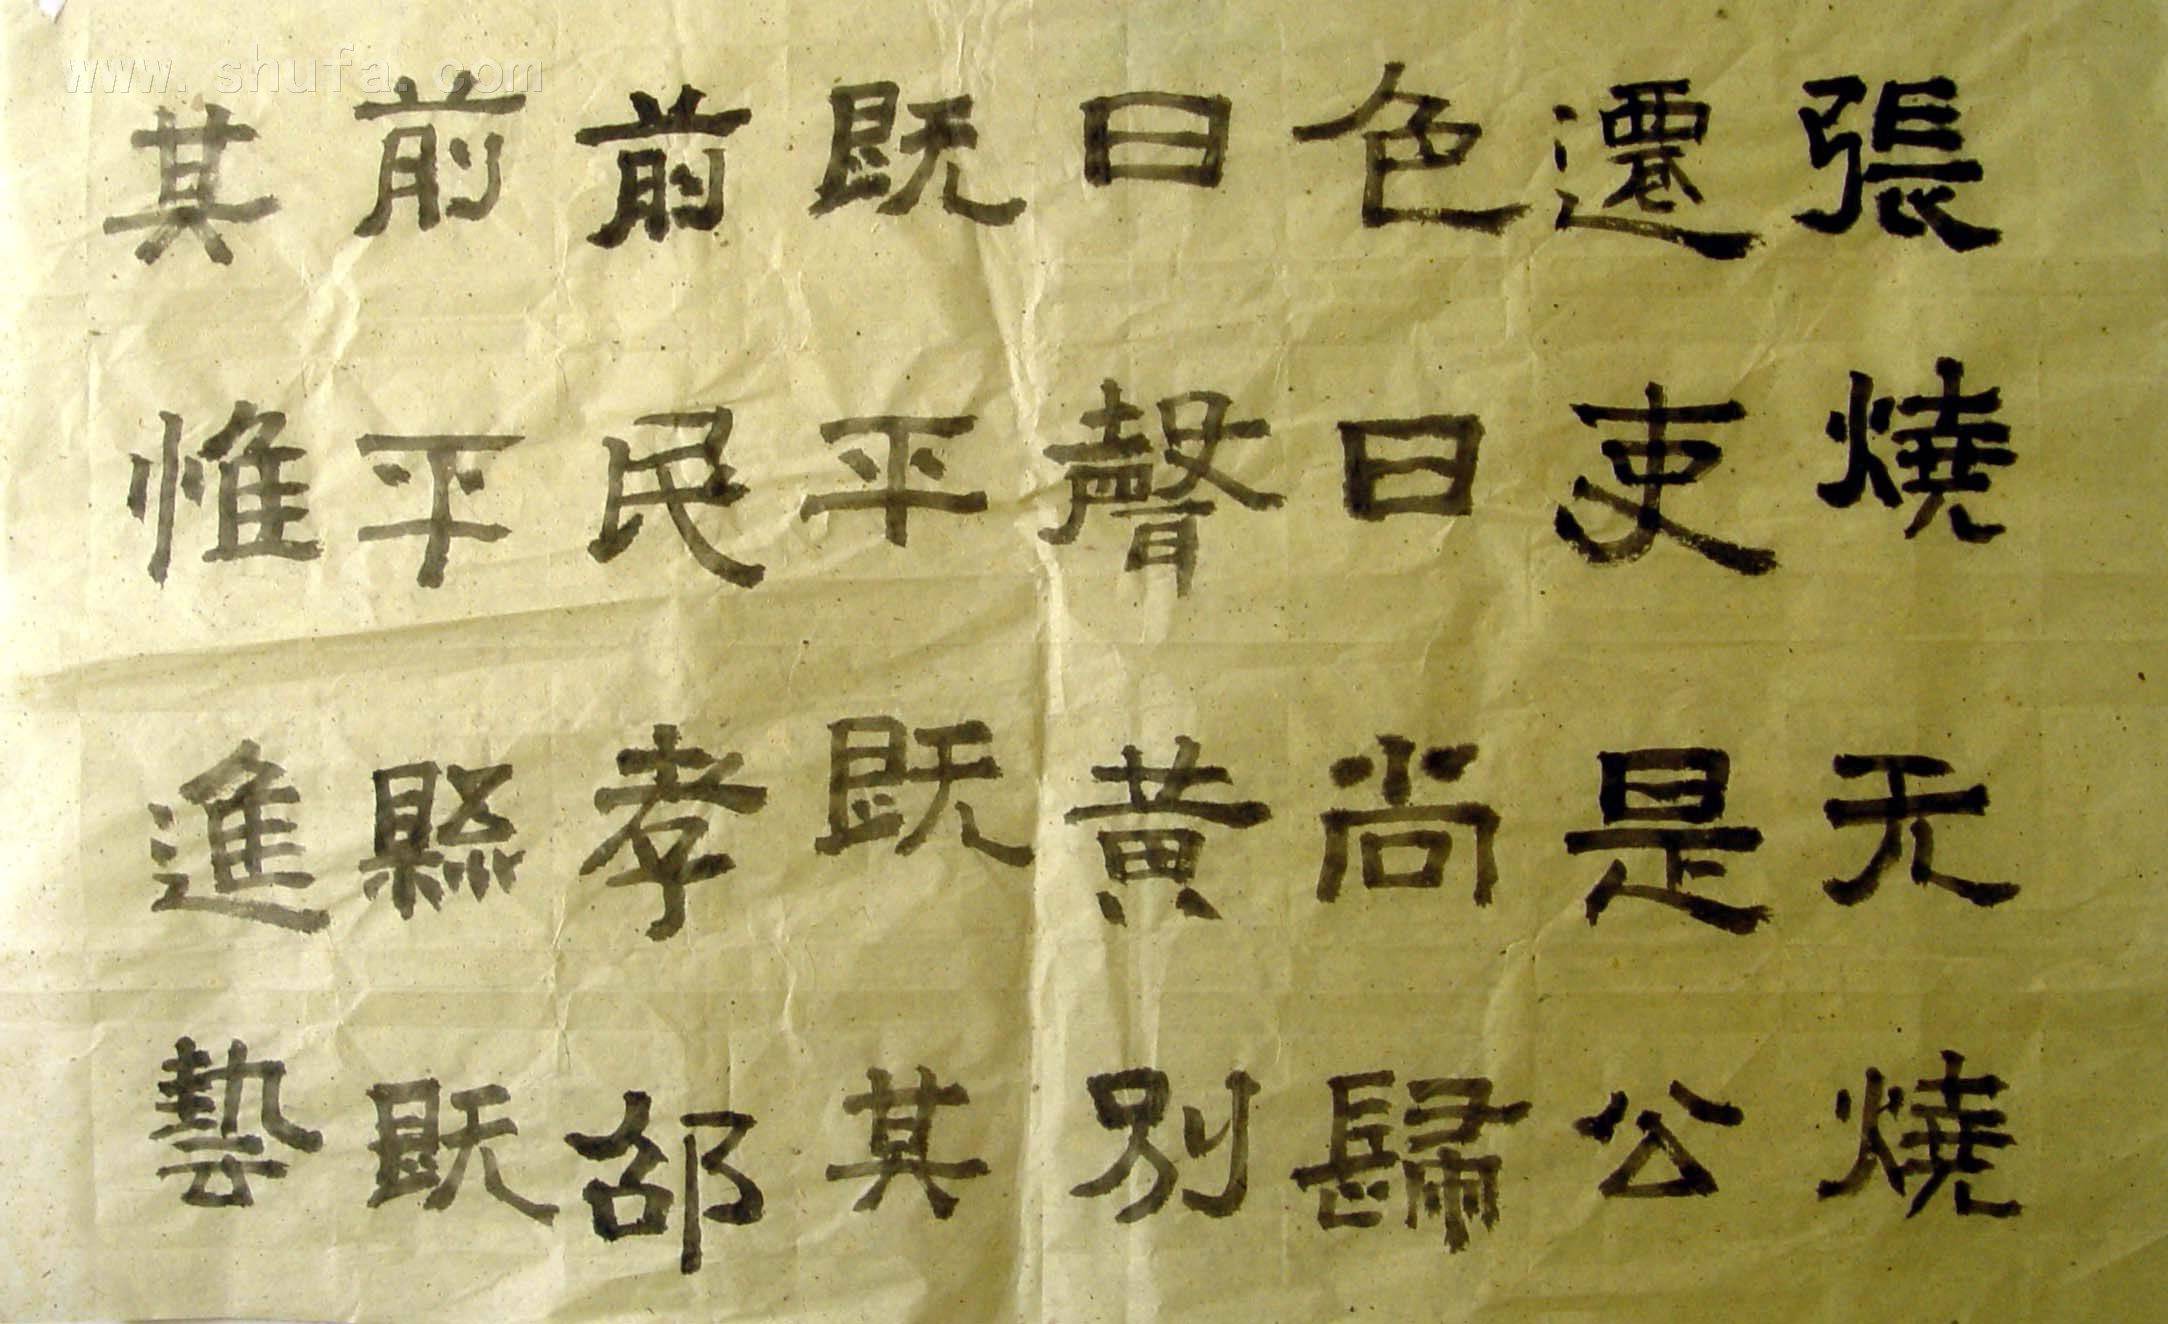 張燒无燒
遷吏是公
色曰尚歸
曰聲黃別
既平既其
前民孝邵
前平縣既
其惟進藝
www.shufa.com